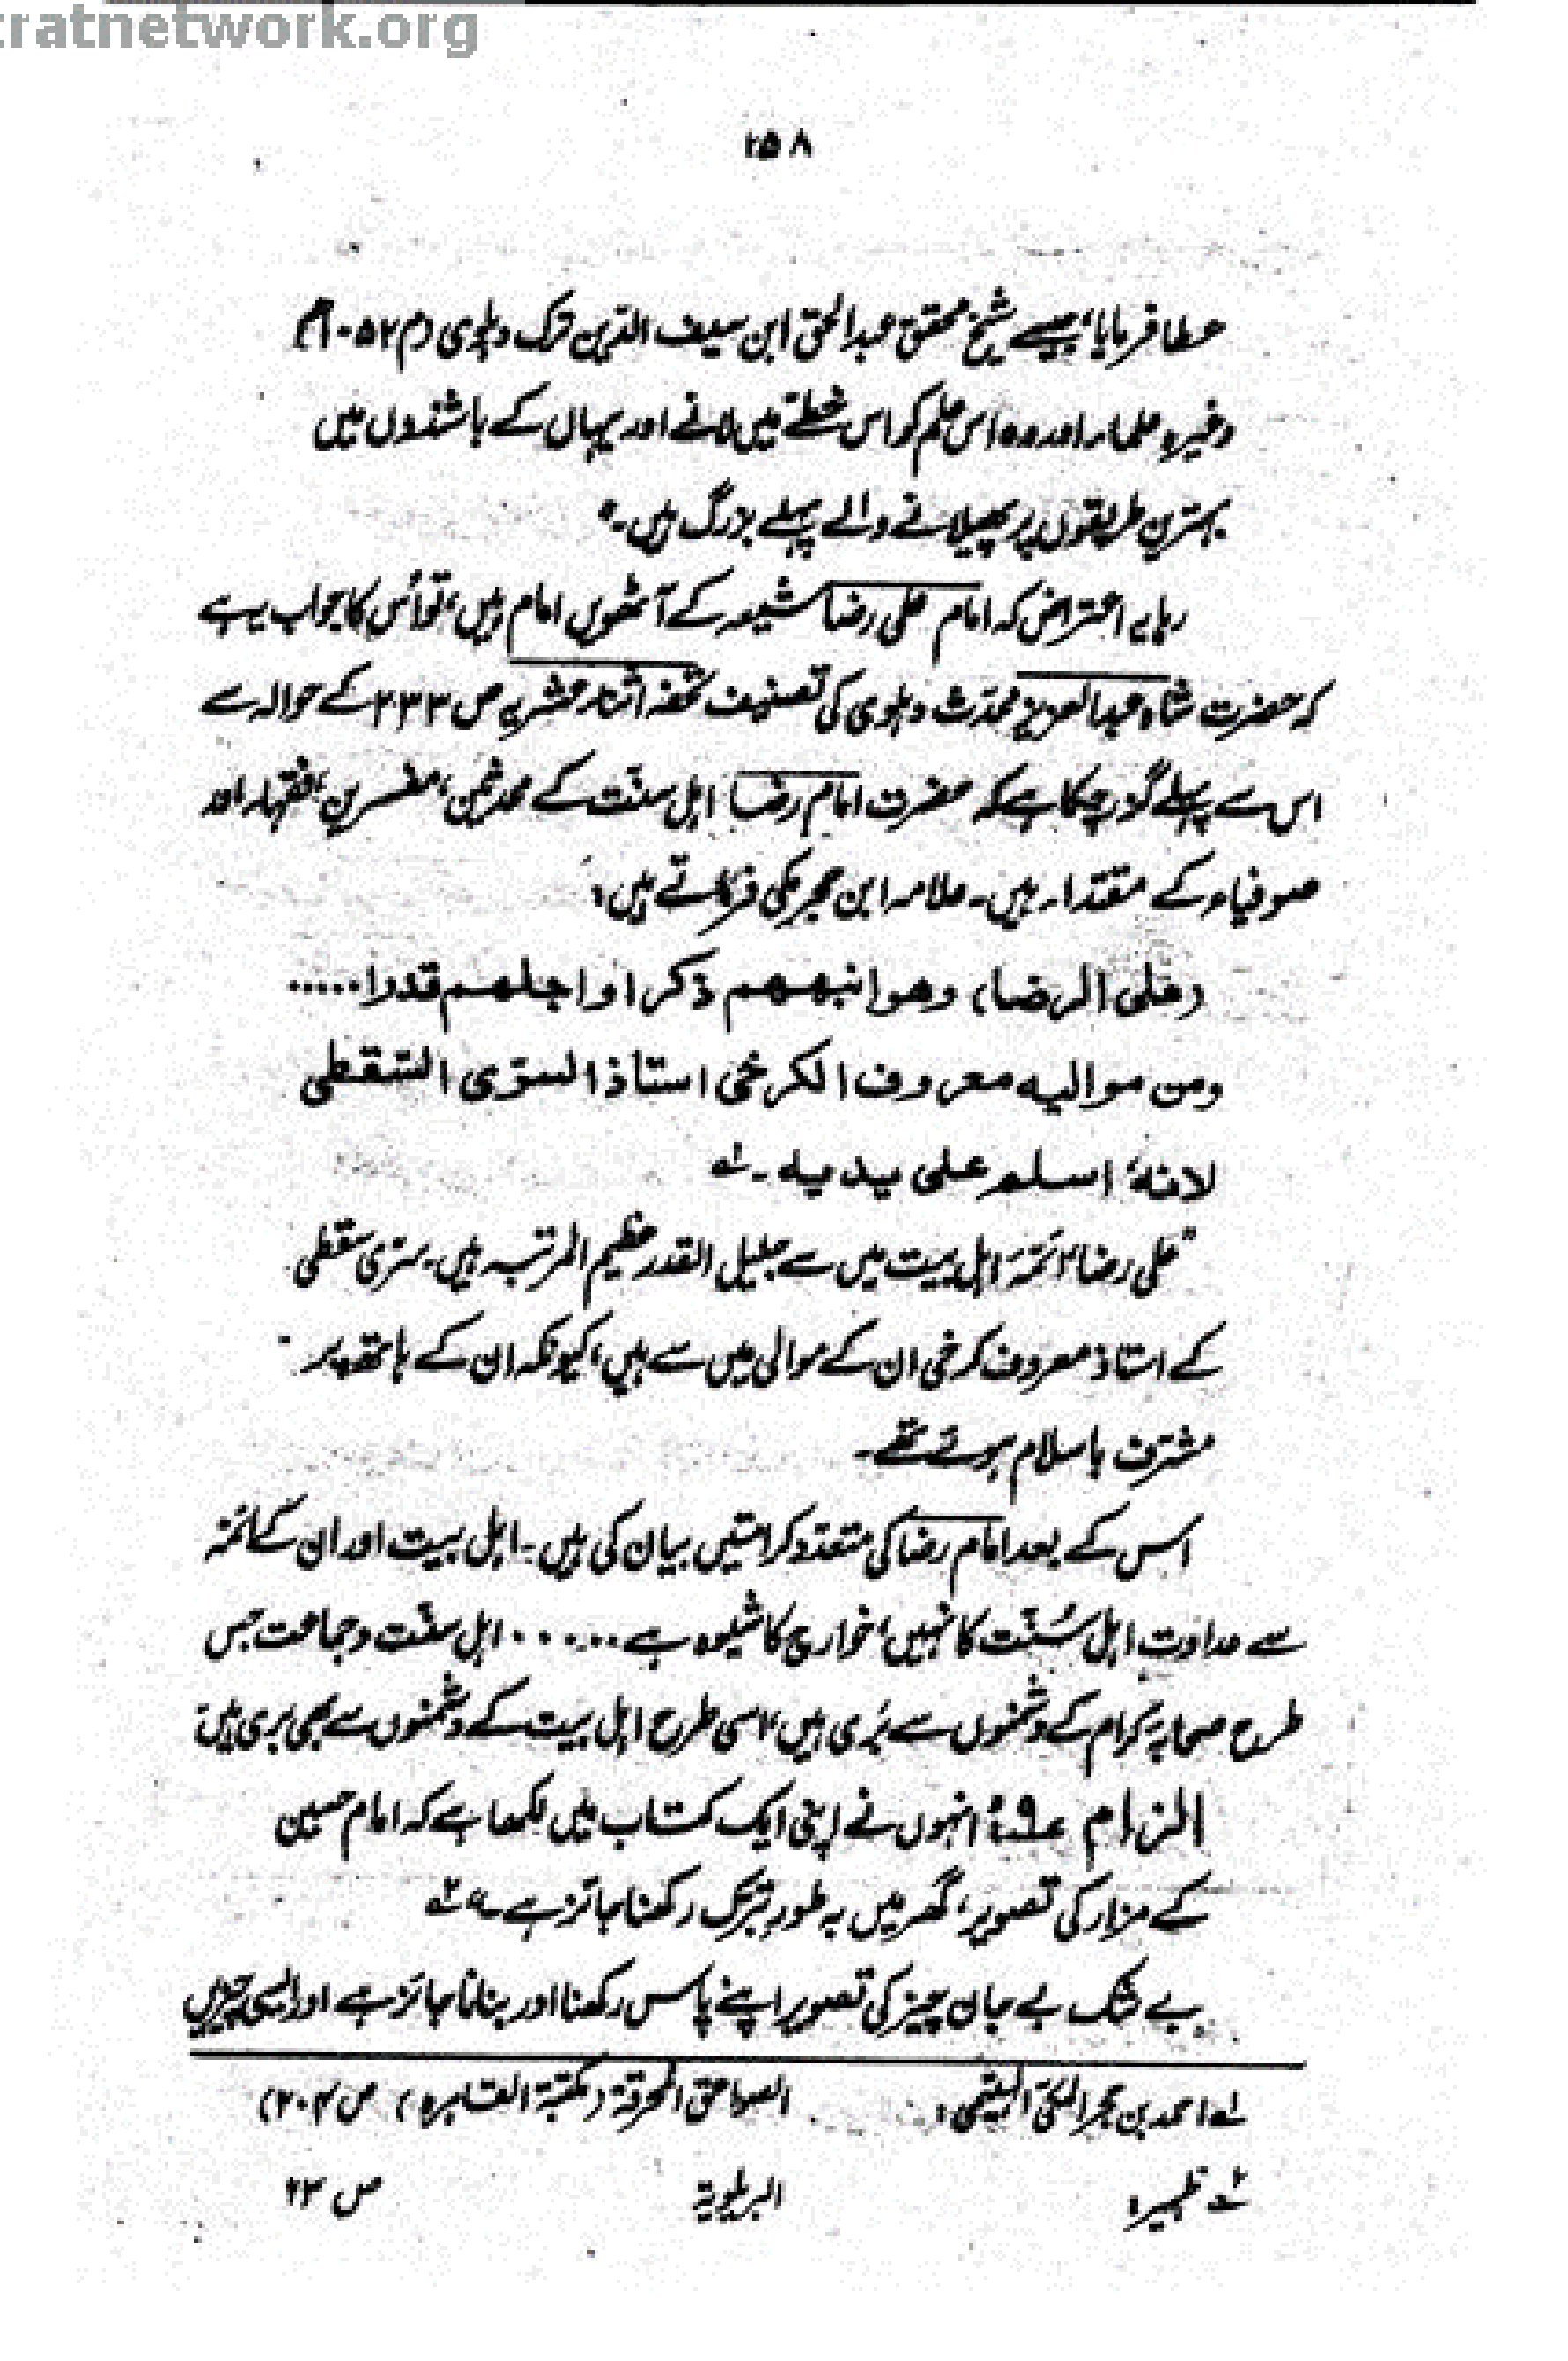 tratnetwork.org
۲۵۸
عطا فرمایا، جیسے شیخ محقق عبدالحق ابن سیف الدین ترک دہلوی (م ۱۰۵۲ھ)
وغیرہ علماء اور وہ اس علم کو اس خطے میں لانے اور یہاں کے باشندوں میں
بہترین طریقوں پر پھیلانے والے پہلے بزرگ ہیں۔"
رہا یہ اعتراض کہ امام علی رضا شیعہ کے آٹھویں امام ہیں، تو اُس کا جواب یہ ہے
کہ حضرت شاہ عبدالعزیز محدّث دہلوی کی تصنیف تحفہ اثناء عشریہ ص ۲۳۳ کے حوالہ سے
اس سے پہلے گزر چکا ہے کہ حضرت امام رضا اہل سنّت کے محدثین، مفسرین، فقہاء اور
صوفیاء کے مقتداء ہیں۔ علامہ ابن حجر مکی فرماتے ہیں:
(علی الرضا) وھو انبھھم ذکرا واجلھم قدرا.....
ومن موالیه معروف الکرخی استاذ السرّی السّقطی
لانهٗ اسلم علی یدیه۔ ؎۱
"علی رضا ائمّۂ اہلِ بیت میں سے جلیل القدر عظیم المرتبہ ہیں۔ سرّی سقطی
کے استاذ معروف کرخی ان کے موالی میں سے ہیں، کیونکہ ان کے ہاتھ پر
مشرّف باسلام ہوئے تھے۔
اس کے بعد امام رضا کی متعدّد کرامتیں بیان کی ہیں۔ اہل بیت اور ان کے ائمّہ
سے عداوت اہلِ سُنّت کا نہیں، خوارج کا شیوہ ہے ...... اہلِ سنّت وجماعت جس
طرح صحابہ کرام کے دشمنوں سے بَری ہیں، اسی طرح اہلِ بیت کے دشمنوں سے بھی بری ہیں
الزام ۹؎: انہوں نے اپنی ایک کتاب میں لکھا ہے کہ امام حسین
کے مزار کی تصویر، گھر میں بہ طورِ تبرّک رکھنا جائز ہے۔" ؎۲
بے شک بے جان چیز کی تصویر اپنے پاس رکھنا اور بنانا جائز ہے اور ایسی چیزیں
؎۱ احمد بن حجر المکّی الہیتمی: الصواعق المحرقۃ (مکتبۃ القاہرہ) ص ۲۰۴)
؎۲ ظہیر: البریلویۃ ص ۲۳